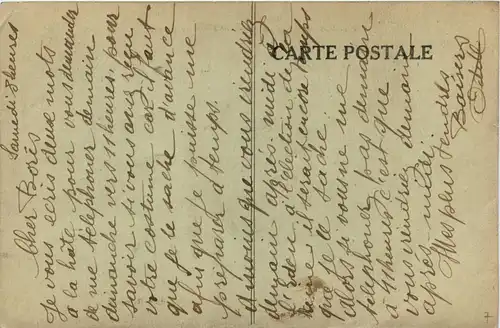 CARTE POSTALE
Samedi 8 heures
Cher Borès
Je vous ecris deux mots
à la hâte pour vous demander
de me télephoner demain
dimanche vers 11 heures pour
savoir si vous aurez
votre costume car il faut
que je le sache d'avance
afin que je puisse me
préparer à temps.
à moins que vous viendriez
demain après midi
l'élection de la
il serait temps
que je le sache
alors si vous ne me
telephonez pas demain
à 11 heures c'est que
vous viendrez demain
après midi.
Mes plus tendres
Baisers
7